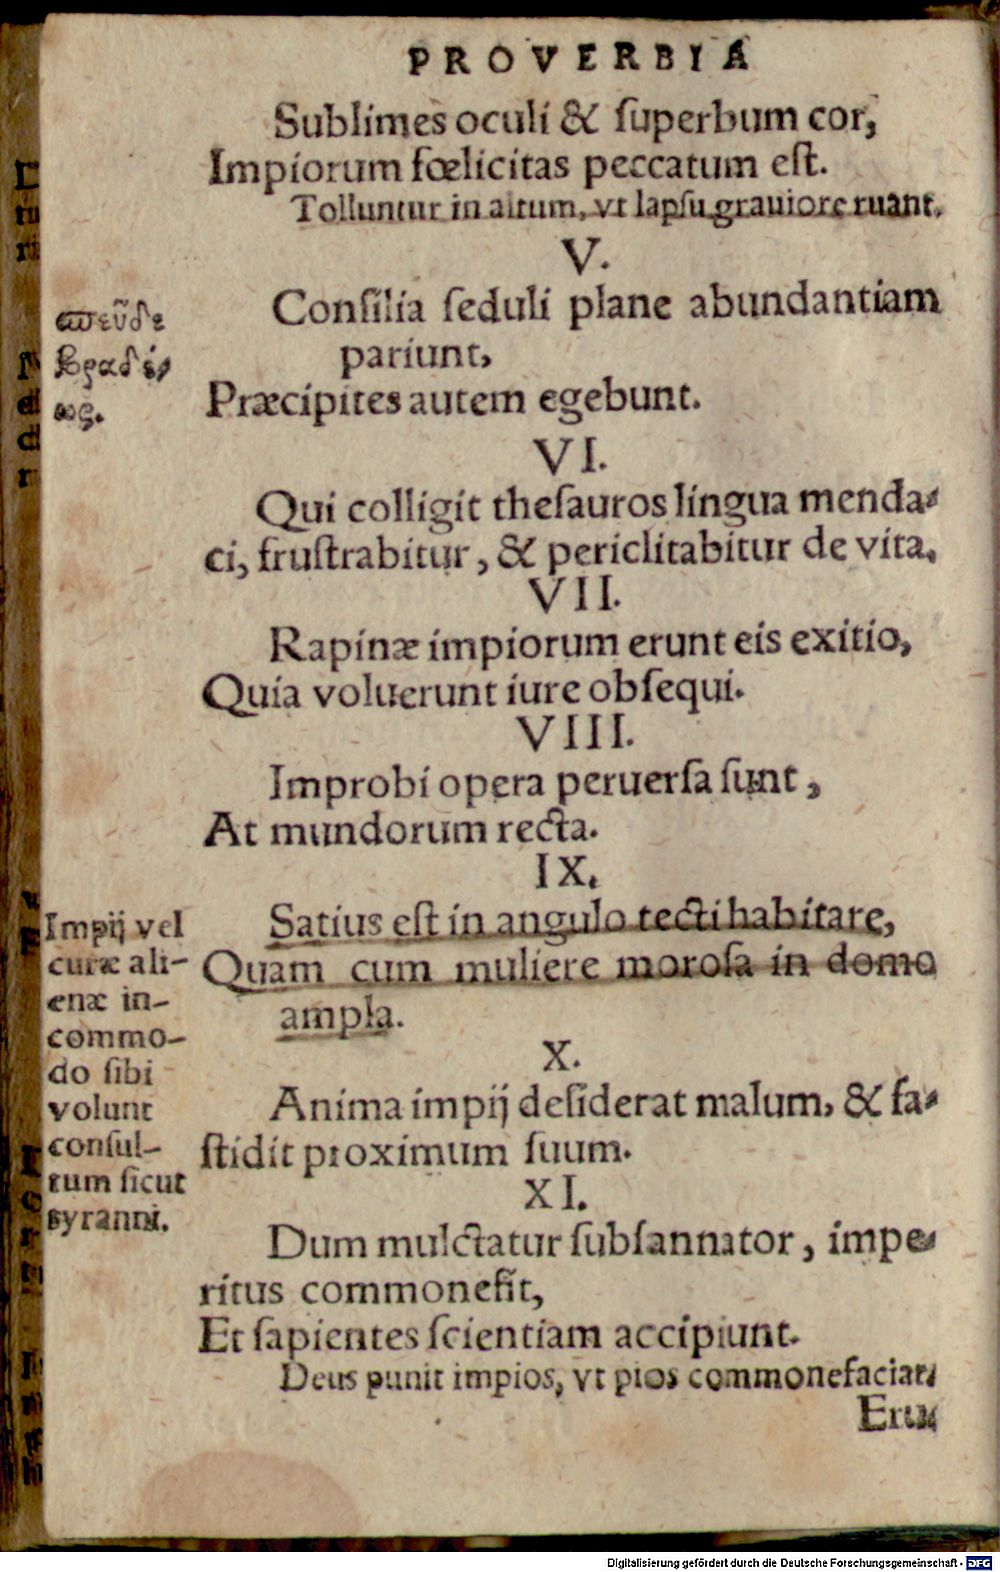 PROVERBIA
Sublimes oculi & ſuperbum cor,
Impiorum fœlicitas peccatum eſt.
Tolluntur in altum, vt lapſu grauiore ruant.
V.
Conſilia ſeduli plane abundantiam
pariunt,
Præcipites autem egebunt.
σπεῦδε
βραδέ⸗
ως.
VI.
Qui colligit theſauros lingua menda⸗
ci, fruſtrabitur, & periclitabitur de vita.
VII.
Rapinæ impiorum erunt eis exitio,
Quia voluerunt iure obſequi.
VIII.
Improbi opera peruerſa ſunt,
At mundorum recta.
IX.
Satius eſt in angulo tecti habitare,
Quam cum muliere moroſa in domo
ampla.
Impij vel
curæ ali-
enæ in-
commo-
do ſibi
volunt
conſul-
tum ſicut
tyranni.
X.
Anima impij deſiderat malum, & fa⸗
ſtidit proximum ſuum.
XI.
Dum mulctatur ſubſannator, impe⸗
ritus commonefit,
Et ſapientes ſcientiam accipiunt.
Deus punit impios, vt pios commonefaciat.
Digitalisierung gefördert durch die Deutsche Forschungsgemeinschaft - DFG